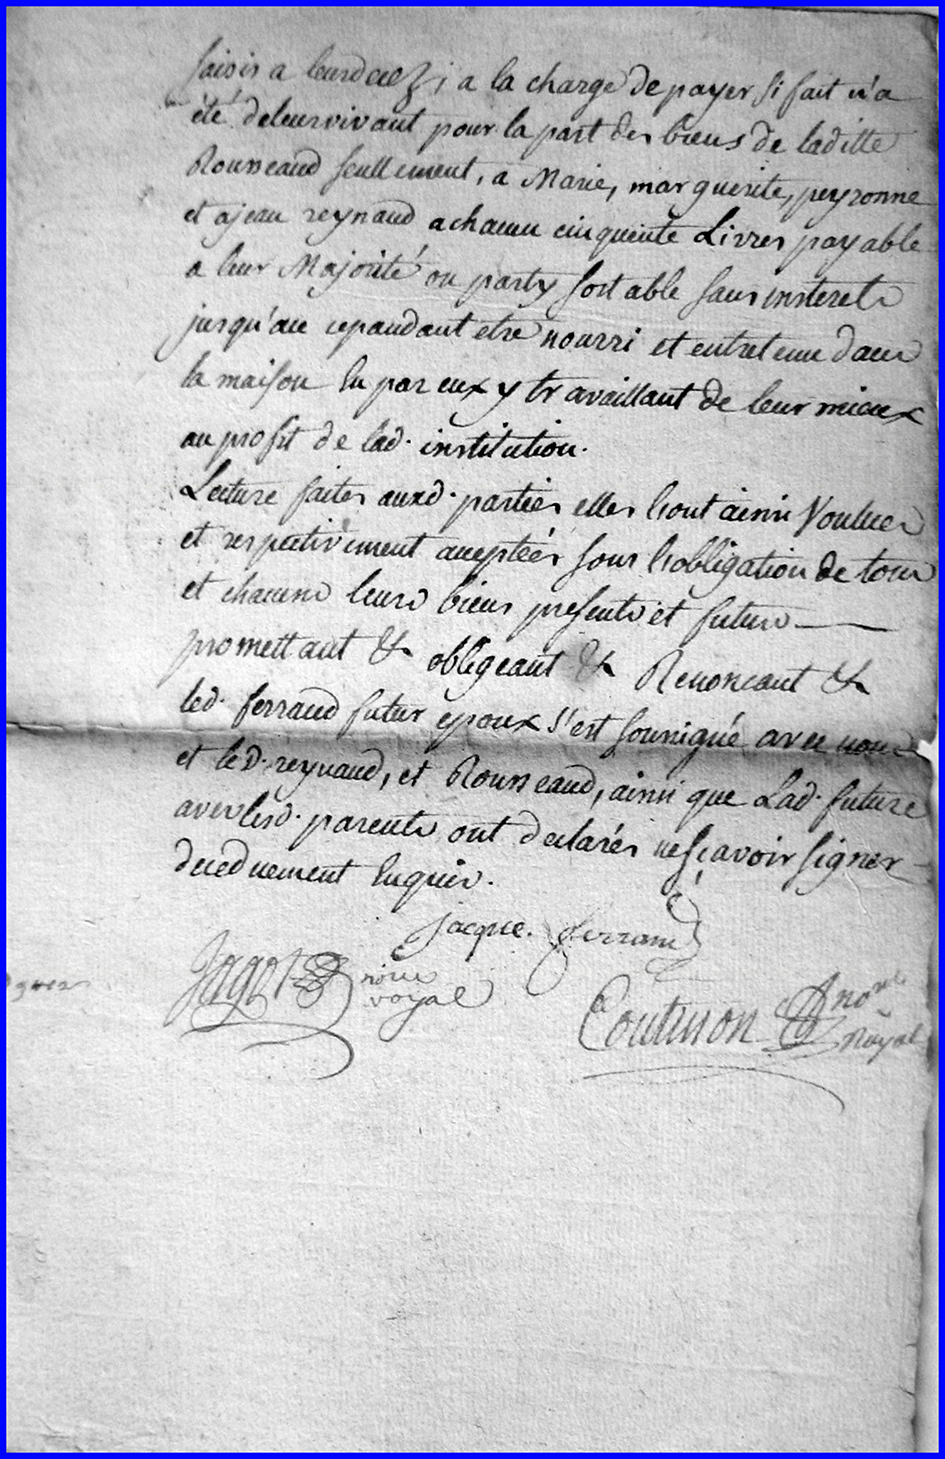 saisis a leurdeces, a la charge de payer si fait n'a
été deleurvivant pour la part des biens de laditte
Rousseaud seullement, a Marie, marguerite, peyronne
et ajean reynaud achacun cinquente Livres payable
a leur Majorité ou party sortable sans insterets
jusqu'ace cepandant etre nourri et entretenu dans
la maison en par eux y travaillant de leur mieux
au profit de lad. institution.
Lecture faites auxd. parties elles l'ont ainsi Voulues
et respectivement acceptées sous l'obligation de tous
et chacuns leurs biens presents et futurs
promettant & obligeant & Renoncant &
led. ferraud futur epoux s'est sousigné avec nous
et led. reynaud, et Rousseaud, ainsi que Lad. future
avec lesd. parents ont declarés nesçavoir signer
decednement enquis.
jacque. ferrand
Jagot nore
royal
Coutuson nore
Royal